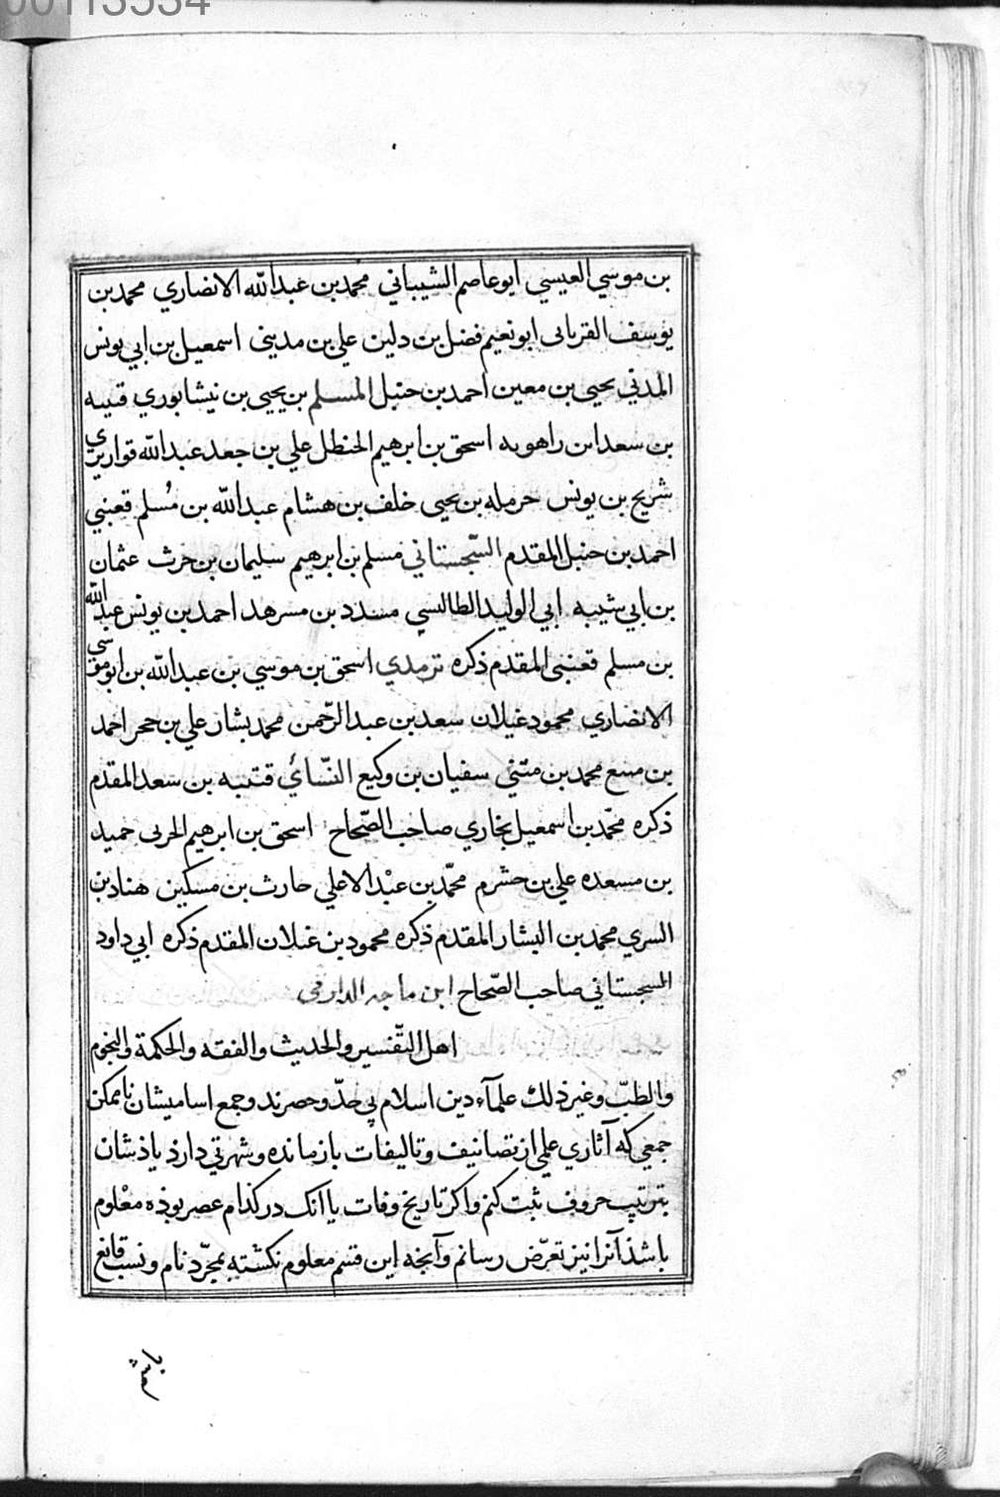 00113534
بن موسي العيسي ابوعاصم الشيباني محمد بن عبدالله الانصاري محمد بن
يوسف القربابى ابونعيم فضل بن دلين علي بن مدينى اسمعيل بن ابي يونس
المدني يحيى بن معين احمد بن حنبل المسلم بن يحيى بن نيشابوري قتيبه
بن سعد ابن راهويه اسحق بن ابرهيم الحنظل علي بن جعد عبدالله قواريري
شريح بن يونس حرمله بن يحيى خلف بن هشام عبدالله بن مُسلم قعنبي
احمد بن حنبل المقدم السّجستاني مسلم بن ابرهيم سليمان بن حرث عثمان
بن ابي شيبه ابي الوليد الطالسي مسدد بن مسرهد احمد بن يونس عبدالله
بن مسلم قعنبى المقدم ذكره ترمدي اسحق بن موسي بن عبدالله بن ابوموسي
الانصاري محمود غيلان سعد بن عبد الرّحمن محمد بشار علي بن حجر احمد
بن منيع محمد بن مثني سفيان بن وكيع النّسائي قتيبه بن سعد المقدم
ذكره محمّد بن اسمعيل بخاري صاحب الصّحاح اسحق بن ابرهيم الحربى حميد
بن مسعده علي بن حشرم محمّد بن عبْد الاعلي حارث بن مسكين هناد بن
السري محمد بن البشار المقدم ذكره محمود بن غيلان المقدم ذكره ابي داود
السجستاني صاحب الصّحاح ابن ماجه الدارمى
اهل التّفسير والحديث والفقه والحكمة والنجوم
والطبّ وغير ذلك علمآء دين اسلام بي حدّ وحصرند وجمع اساميشان ناممكن
جمعي كه آثاري علمي از تصانيف و تاليفات بازمانده وشهرتي دارذ ياذشان
بترتيب حروف ثبت كنم واكر تاريخ وفات يا انك در كدام عصر بوذه معْلوم
باشذ آنرا نيز تعرّض رسانم وآنجه اين قسم معلوم نكشته بمجرّد نام و نسب قانع